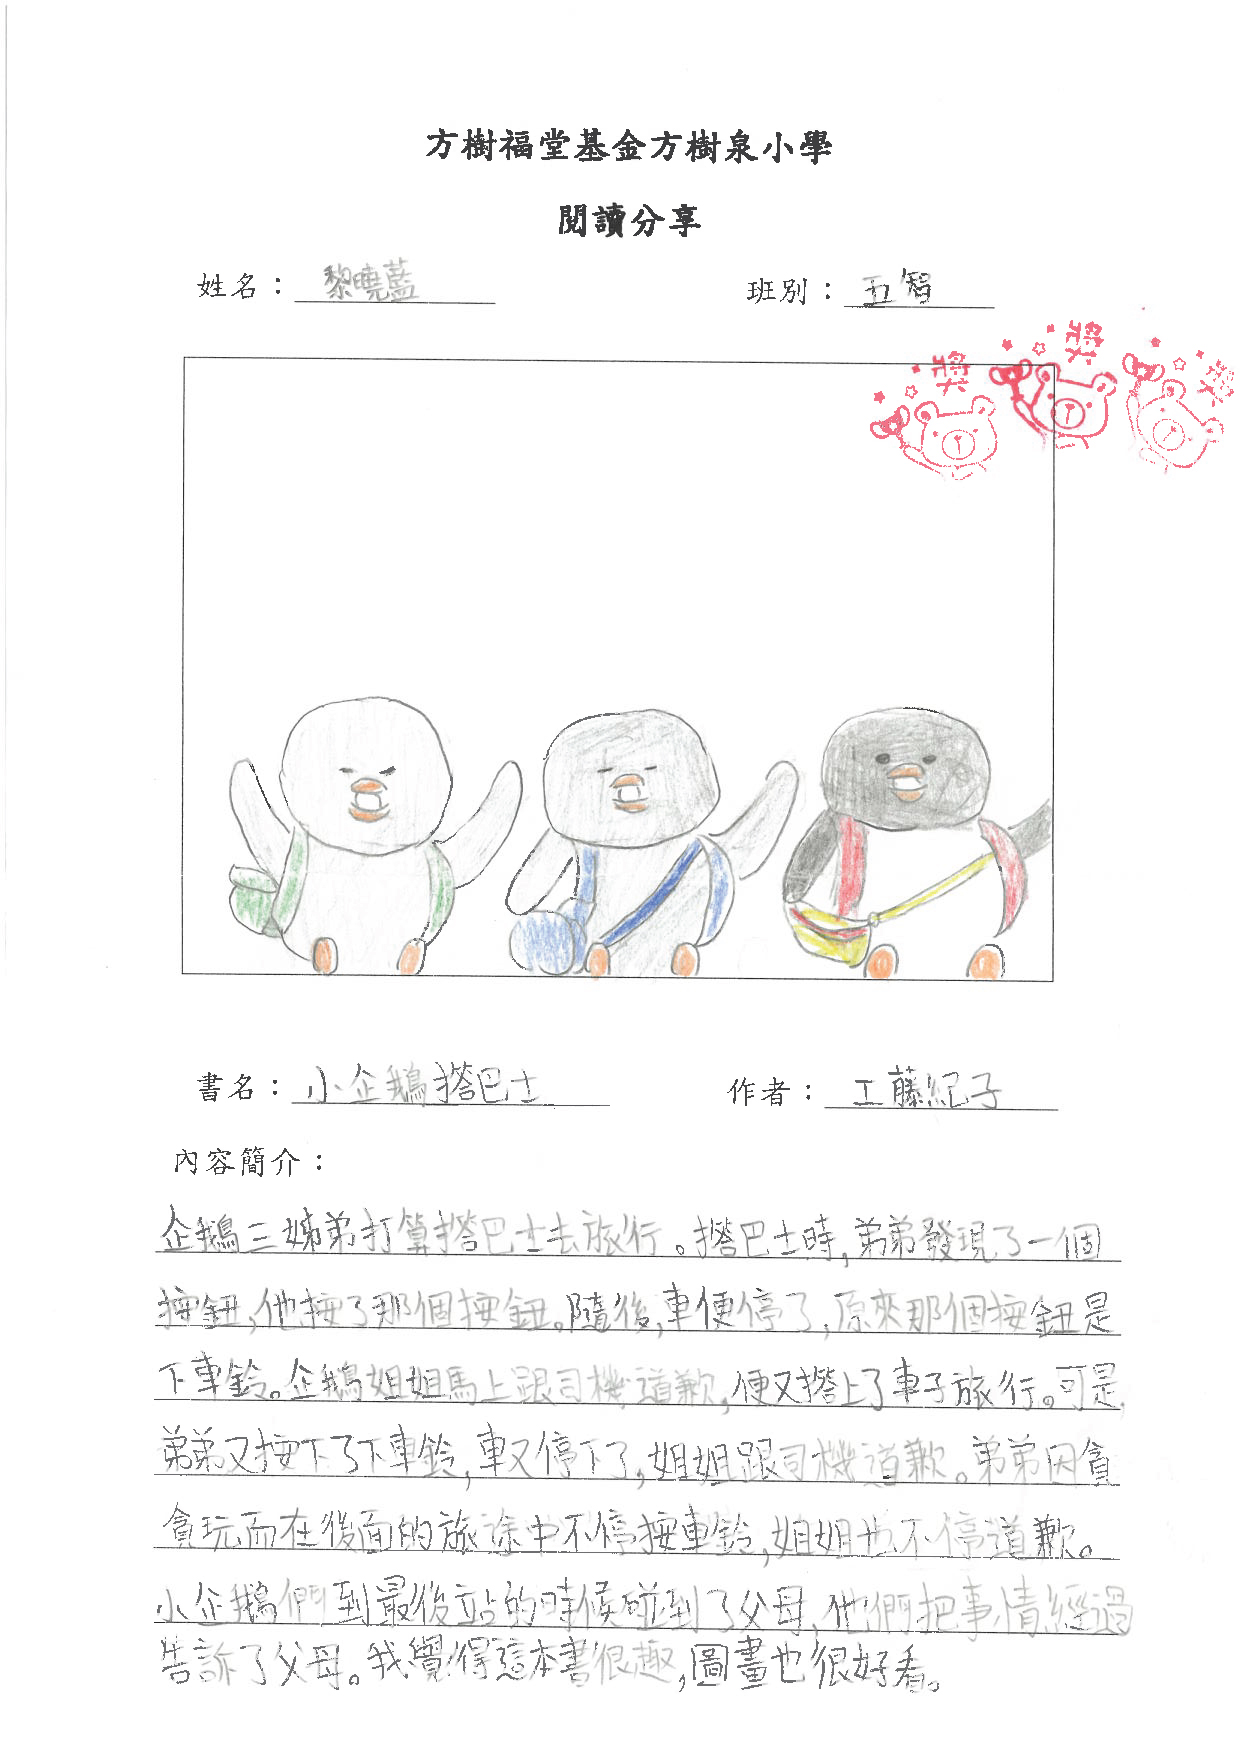 方樹福堂基金方樹泉小學
閱讀分享
姓名：黎曉藍 班別：五智
獎 獎 獎
書名：小企鵝搭巴士 作者：工藤紀子
內容簡介：
企鵝三姊弟打算搭巴士去旅行。搭巴士時,弟弟發現了一個
按鈕,他按了那個按鈕。隨後,車便停了,原來那個按鈕是
下車鈴。企鵝姐姐馬上跟司機道歉,便又搭上了車子旅行。可是
弟弟又按下了下車鈴,車又停下了,姐姐跟司機道歉。弟弟因貪
貪玩而在後面的旅途中不停按車鈴,姐姐也不停道歉。
小企鵝們到最後立占的時候碰到了父母,他們把事情經過
告訴了父母。我覺得這本書很趣,圖畫也很好看。